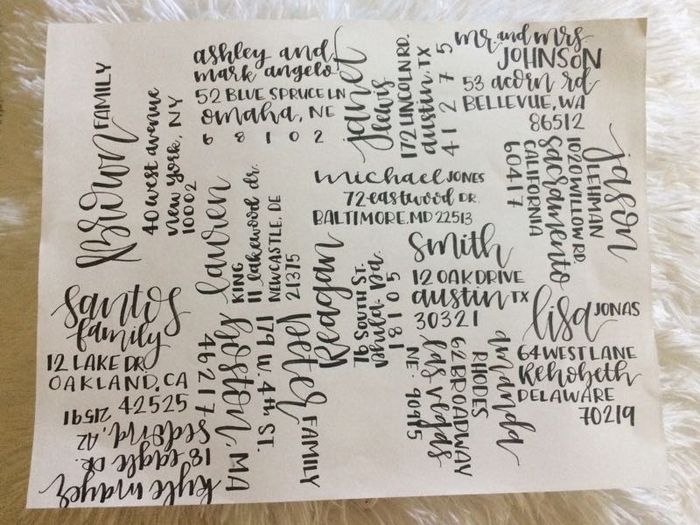 Brown FAMILY
40 west avenue
new york, NY
10002
ashley and
mark angelo
52 BLUE SPRUCE LN
omaha, NE
68102
janet
lewis
172 LINCOLN RD.
austin, TX
41275
mr. and mrs.
JOHNSON
53 acorn rd
BELLEVUE, WA
86512
jason
LEHMAN
1020 WILLOW RD.
sacramento
CALIFORNIA
60417
michael JONES
72 eastwood DR.
BALTIMORE, MD 22513
lauren
KING
11 lakewood dr.
NEWCASTLE, DE
21375
Reagan
76 SOUTH ST.
phila. pa.
10181
smith
12 OAK DRIVE
austin TX
30321
lisa JONAS
64 WEST LANE
Rehobeth
DELAWARE
70219
santos
family
12 LAKE DR
OAKLAND, CA
42525
peter FAMILY
179 W. 4th ST.
boston, MA
46217
amanda
RHODES
62 BROADWAY
las vegas
NE. 90415
kyle mayez
18 eagle dr.
sedona, AZ
21591